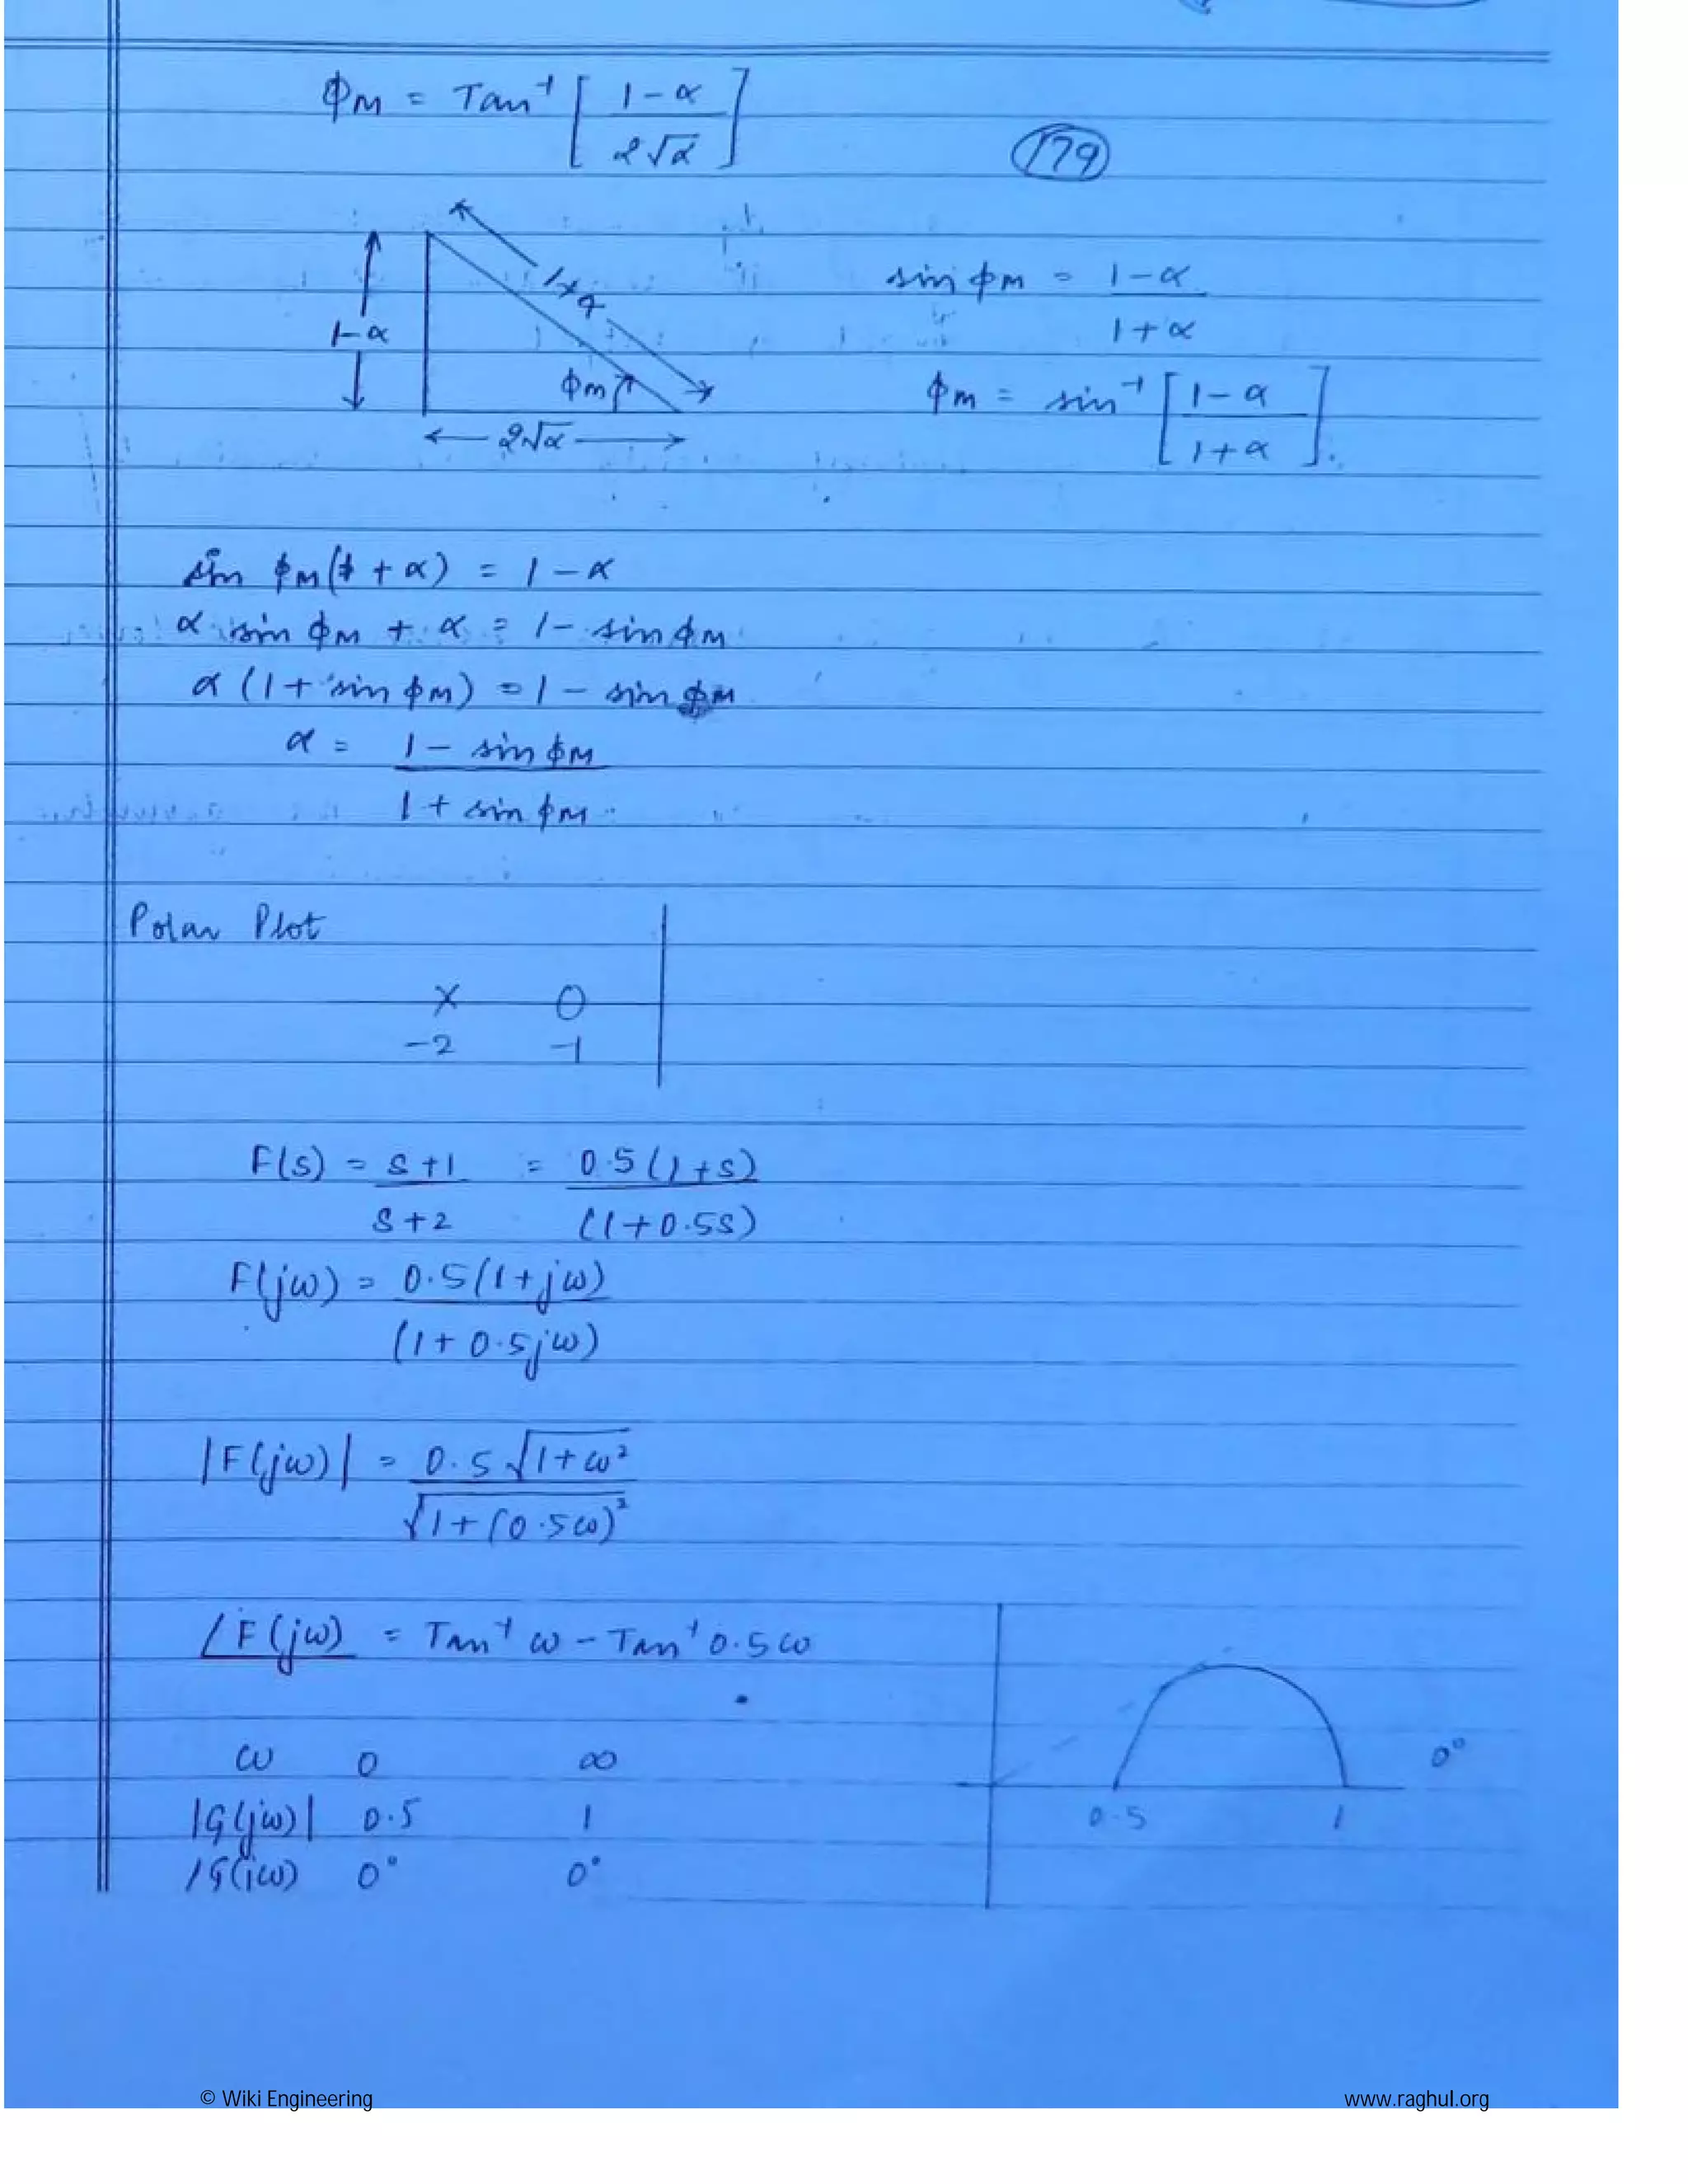 ϕM = Tan⁻¹ [ 1-α / 2√α ]
179
1-α
1+α
ϕm
2√α
sin ϕm = 1-α / 1+α
ϕm = sin⁻¹ [ 1-α / 1+α ].
sin ϕM(1 + α) = 1 - α
α sin ϕM + α = 1 - sin ϕM
α (1 + sin ϕM) = 1 - sin ϕM
α = 1 - sin ϕM / 1 + sin ϕM
Polar Plot
X O
-2 -1
F(s) = s+1 / s+2 = 0.5(1+s) / (1+0.5s)
F(jω) = 0.5(1+jω) / (1+0.5jω)
|F(jω)| = 0.5 √1+ω² / √1+(0.5ω)²
∠F(jω) = Tan⁻¹ ω - Tan⁻¹ 0.5ω
ω 0 ∞
|G(jω)| 0.5 1
∠G(jω) 0° 0°
0.5 1 0°
© Wiki Engineering www.raghul.org